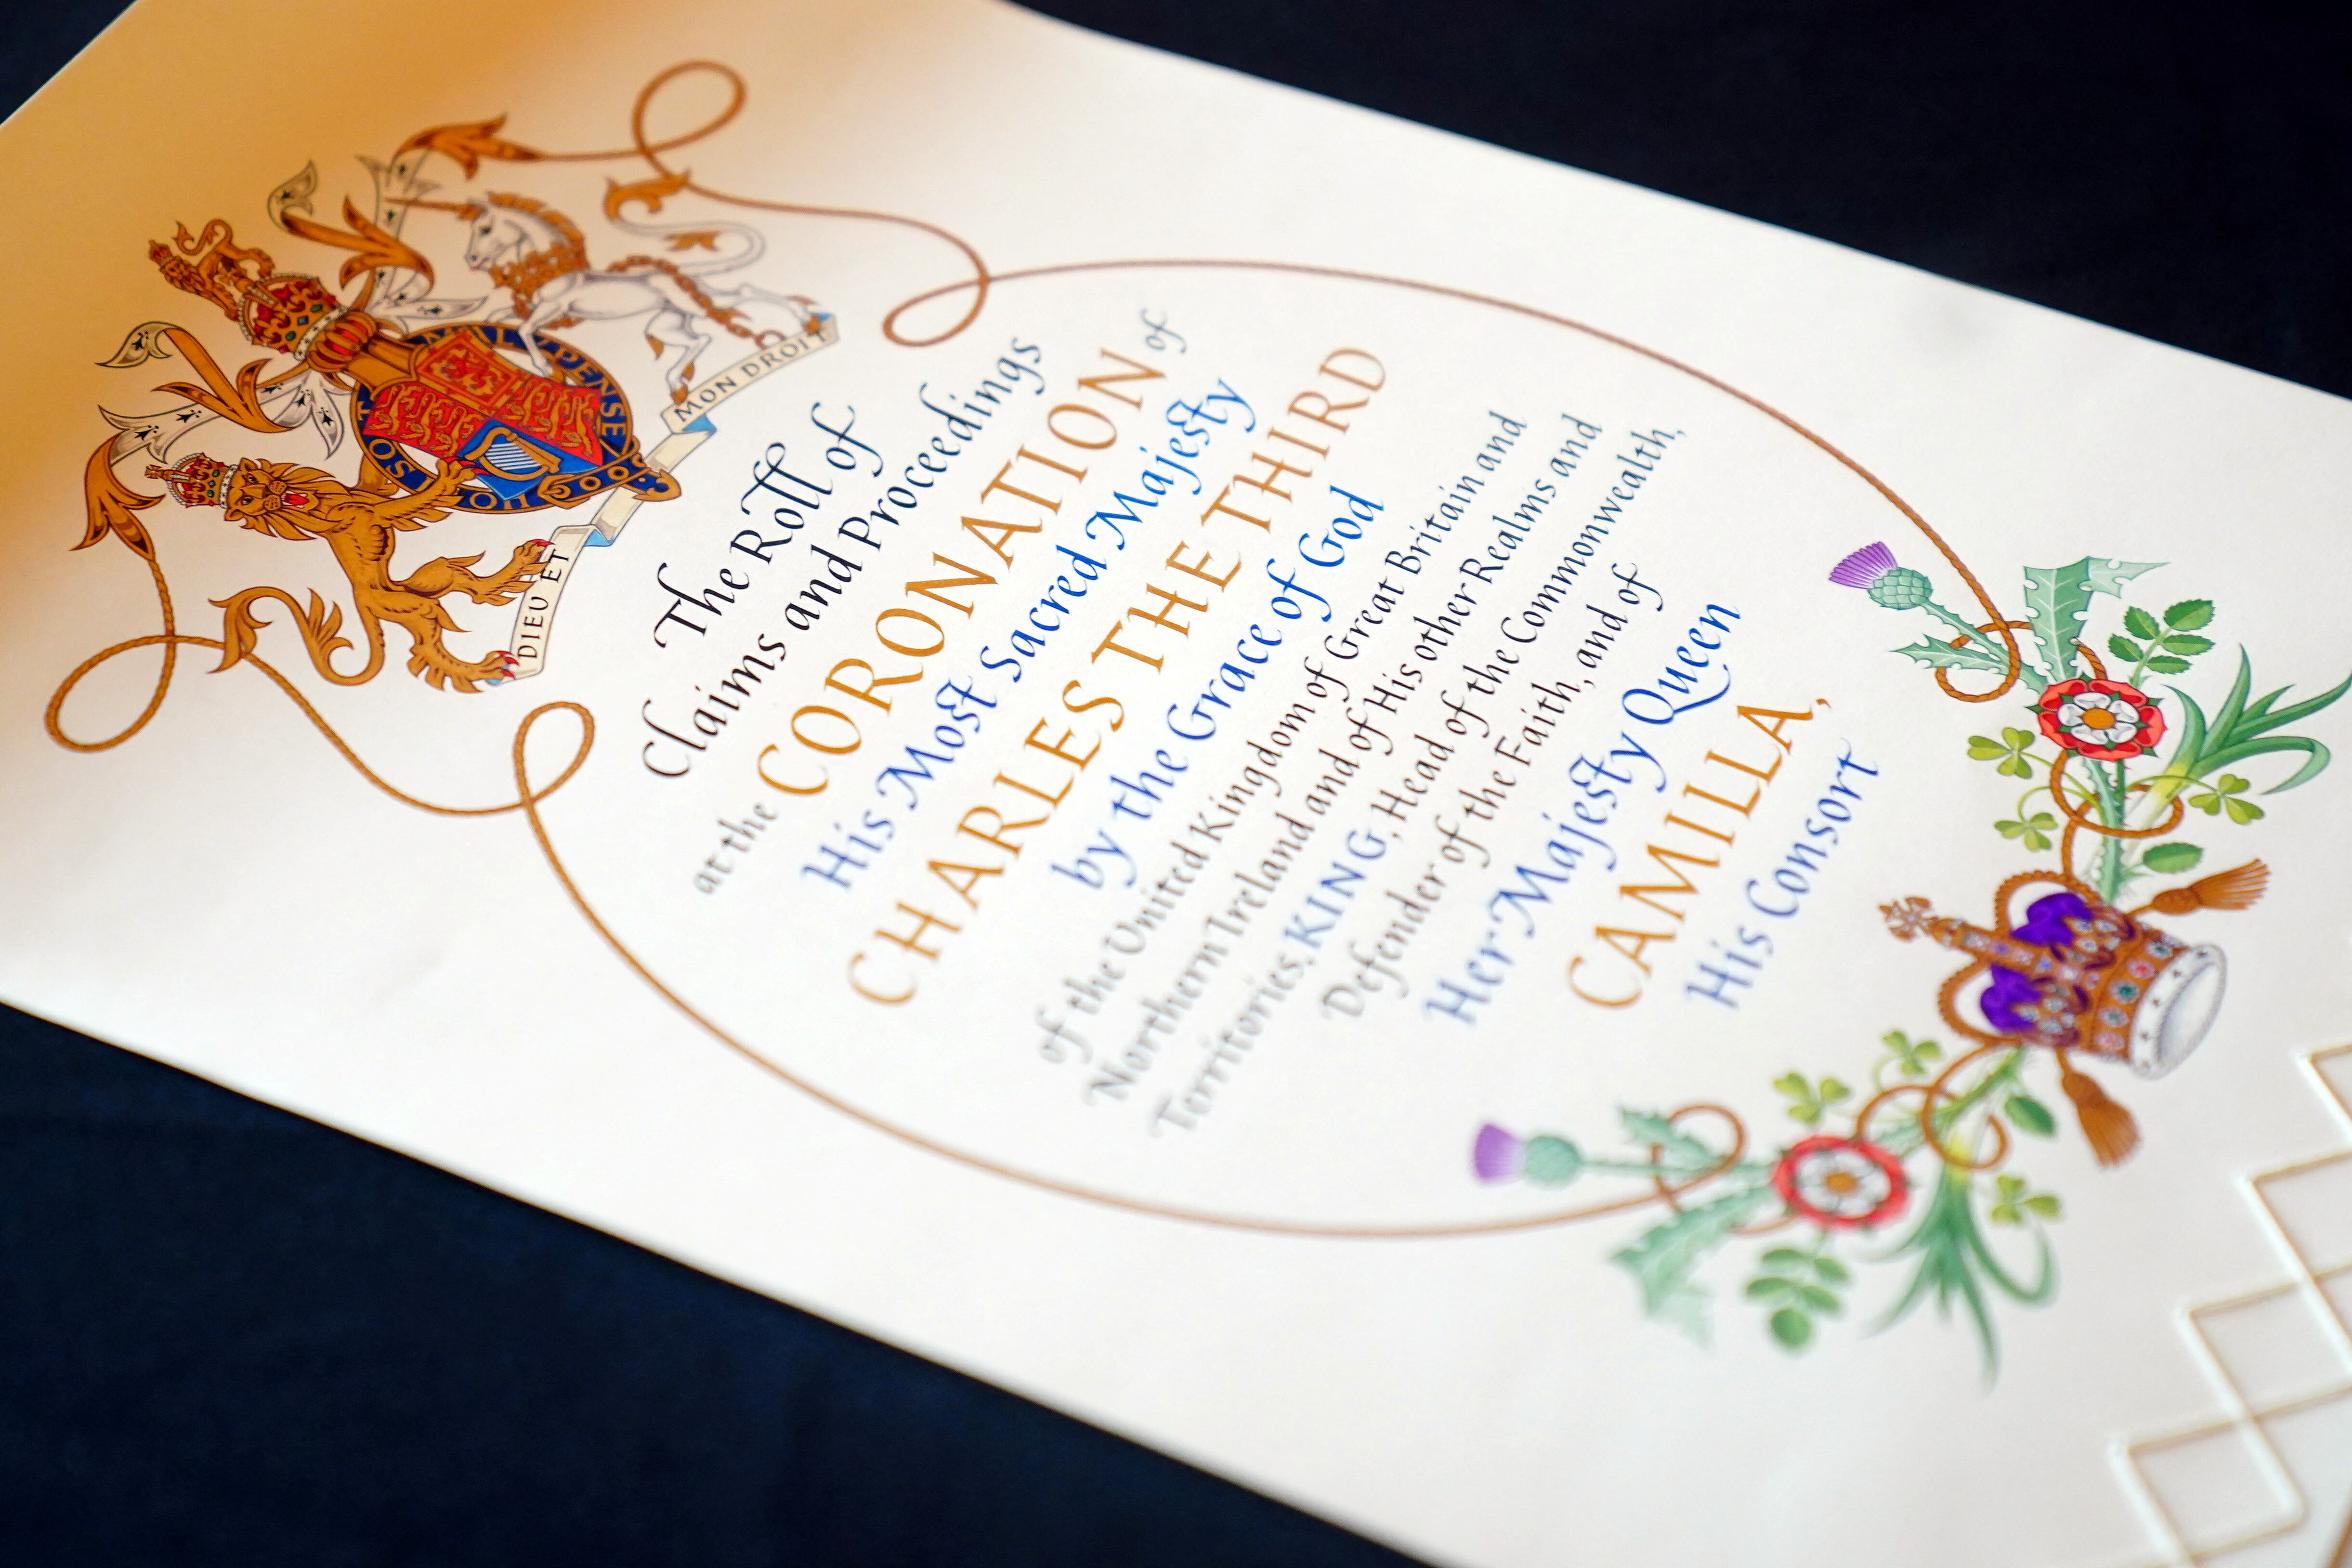 Y PENSE
DIEU ET MON DROIT
The Roll of
Claims and Proceedings
at the CORONATION of
His Most Sacred Majesty
CHARLES THE THIRD
by the Grace of God
of the United Kingdom of Great Britain and
Northern Ireland and of His other Realms and
Territories, KING, Head of the Commonwealth,
Defender of the Faith, and of
Her Majesty Queen
CAMILLA,
His Consort